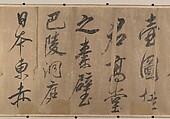 壺圖挂
君高堂
之素壁
巴陵洞庭
日本東赤